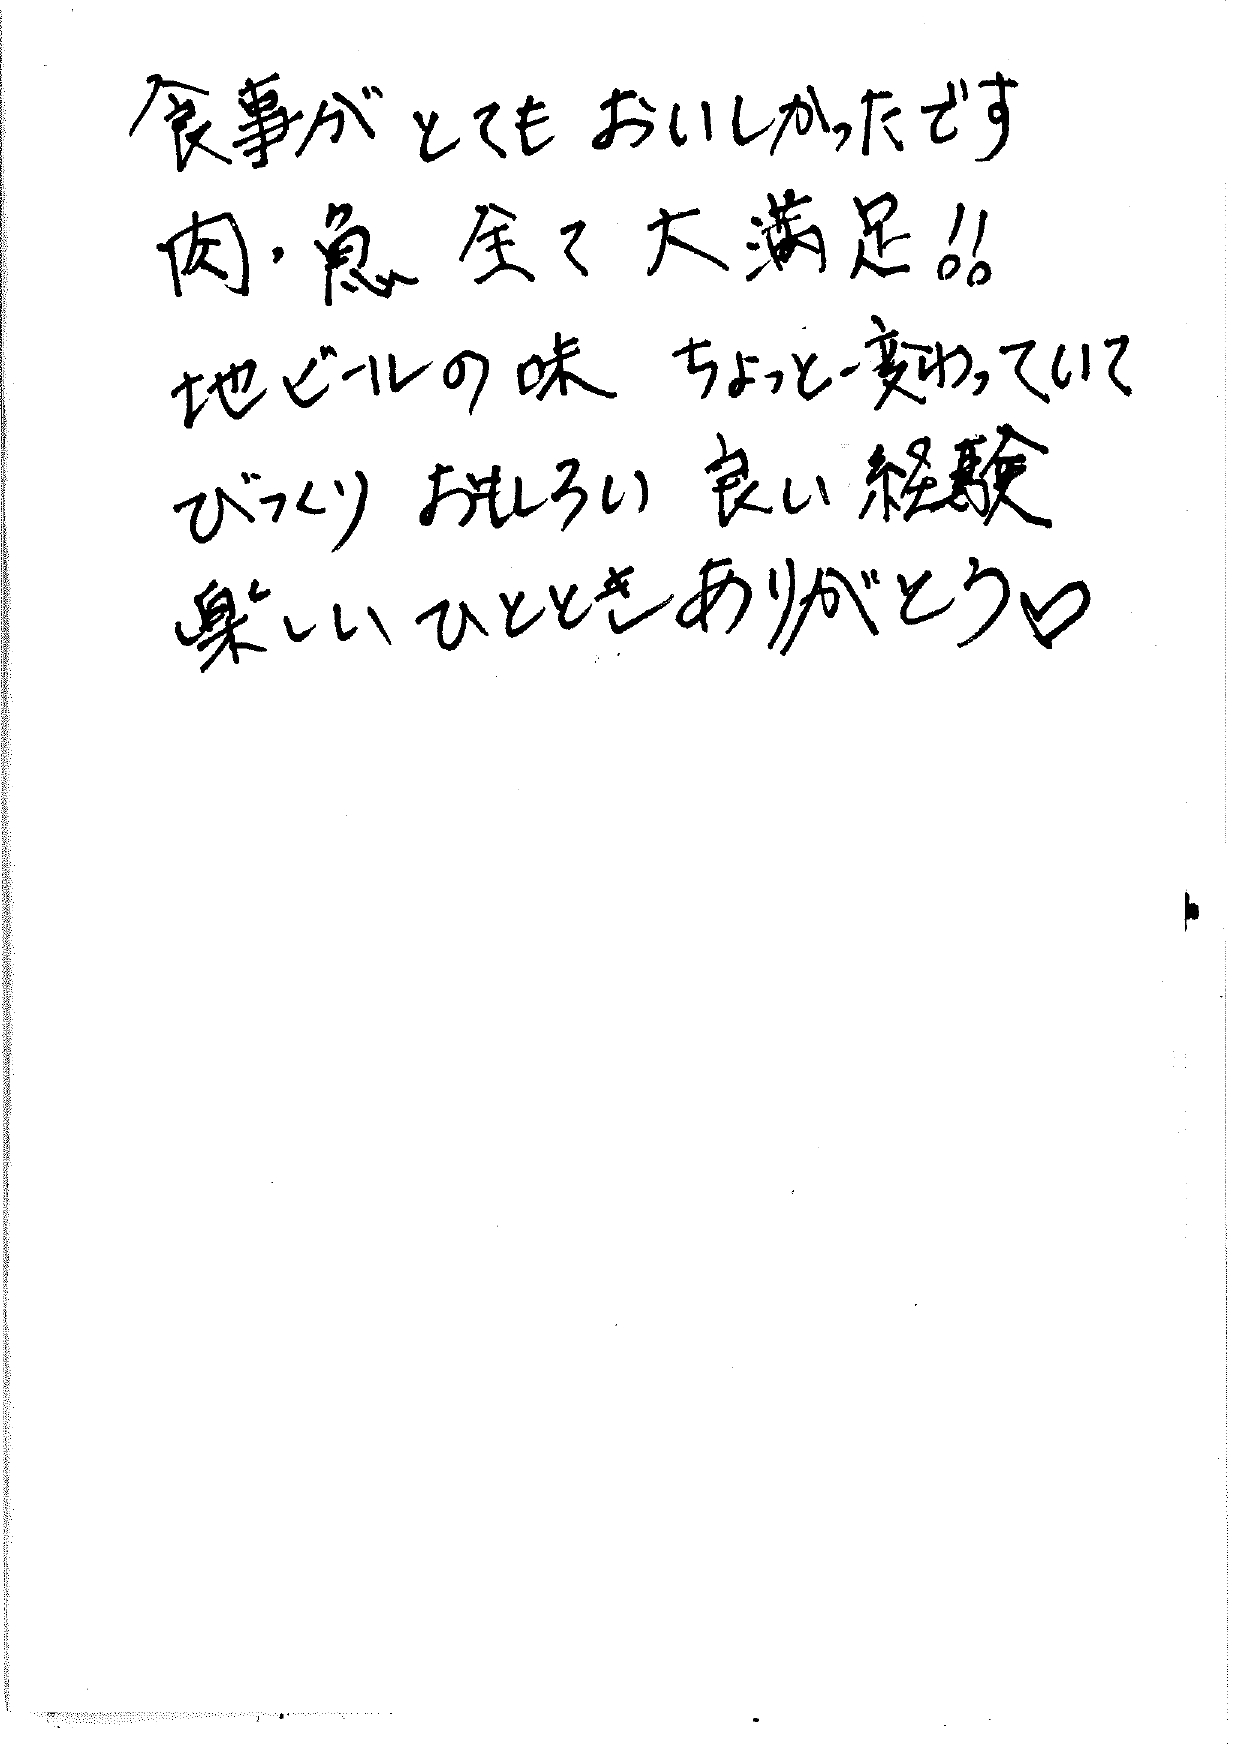 食事が とても おいしかったです
肉・魚 全て 大満足!!
地ビールの味 ちょっと変わっていて
びっくり おもしろい 良い経験
楽しい ひとときありがとう♡